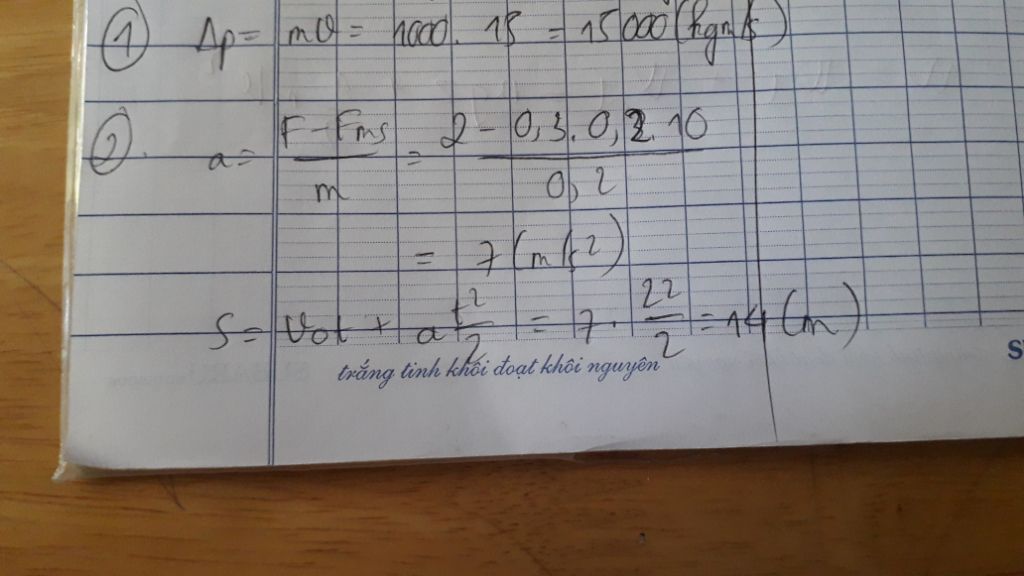 ① Δp = mv = 1000. 15 = 15000 (kgm/s)
②. a = (F - Fms)/m = (2 - 0,3. 0,2. 10)/0,2
= 7 (m/s²)
S = Vot + a t²/2 = 7. 2²/2 = 14 (m)
trắng tinh khôi đoạt khôi nguyên